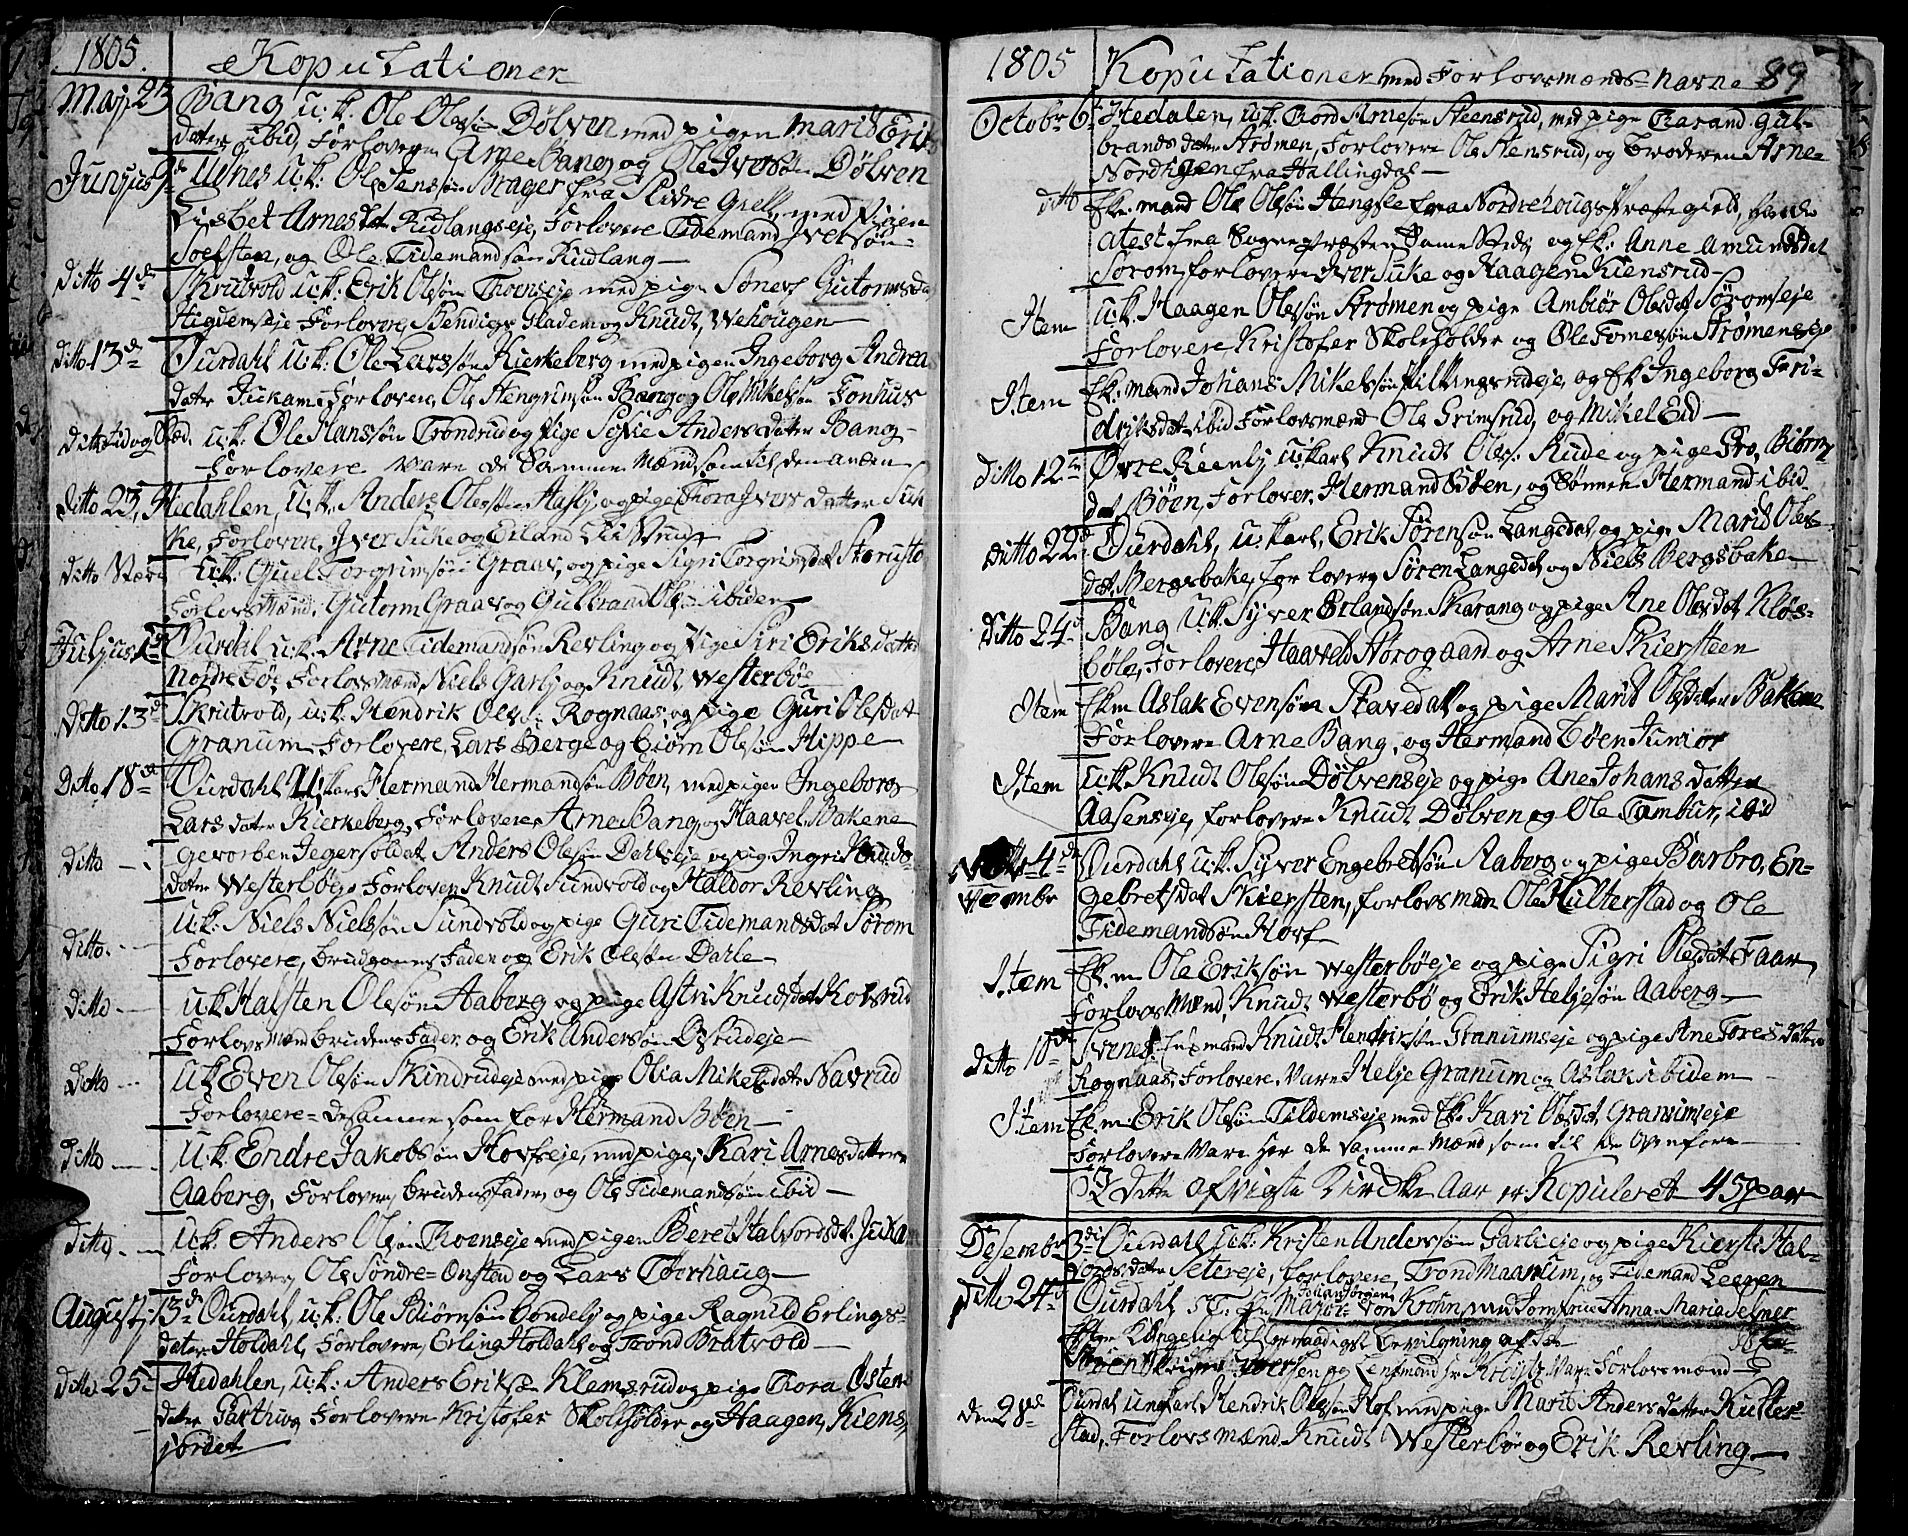 1805.
Kopulationer
Maj 23
Bang u: k. Ole Olesøn Dølven med pigen Marit Erics
dater ibid, Forlovere Arne Bang og Ole Iversøn Dølven
Junjus 9de Ulnes u: k: Ole Jensøn Brager fra Slidre Gield, med Pigen
Lisbet Arnesdat. Rudlangseje, Forlovere Tidemand Iversøn
og Ole Tidemandsøn Rudlang
Ditto 4de Skrutvold u: k: Erik Olesøn Thoenseje med pige Gutormsda
Forlovere, Bendigt Gladem og Knudt Wehougen
Ditto 13de Ourdahl u: k: Ole Larssøn Kierkeberg med pigen Ingeborg Andreas
dater Jukam Forlovere, Ole Hengrimsøn Bang og Ole Mikelsøn Fonhus
Ditto u: k: Ole Hanssøn Trondrud og Pige Sefie Anders dater Bang
Forlovere vare de samme Mænd som til den anden
Ditto 23, Hedahlen, u: k. Anders Olessøn og pige Thora Ivers datter Suk
ke, Forlovere, Iver Suke og Erland
Ditto u: k: Torgrimsøn Graav, og pige Sigri Torgrimsdat
Forlovsmænd, Gutorm Graav og Gulbrand Olsøn ibidem
Juljus 1ste Ourdal u: k. Arne Tidemandsøn Revling og Pige Siri Eriks datter
Nordre Bøe Forlovsmænd, Niels Garlj og Knudt Westerbøe
Ditto 13de Skrutvold, u: k: Hendrik Oless: Rognaas, og pige Guri Olesdat
Granum, Forlovere, Lars Berge og Biørn Olesøn Hippe
Ditto 18de Ourdahl U: kars Hermand Hermandsøn Bøen, med pigen Ingeborg
Lars dater Kierkeberg, Forlovere Arne Bang, og Haavel Bakene
Ditto Gevorben Jegersoldat Anders Olesøn Dahleseje og pige Ingri Knuds
dater Westerbøeje Forlovere Knudt Sundvold og Haldor Revling
Ditto. u: k: Niels Nielssøn Sundvold og pige Guri Tidemandsdat Sørom
Forlovere, brudgomens Fader og Erik Olesøn Dahle
Ditto u: k Halsten Olesøn Aaberg og pige Astri Knudsdat Kolsrud
Forlovsmænd brudens Fader og Erik Anderssøn
Ditto u: k Even Olesøn Skindrudeje med pige Olia Mikelsdater Navrud
Forlovere = de samme som for Hermand Bøen
Ditto u: k. Endre Jakobsøn Hovfseje, med pige, Kari Arnesdatter
Aaberg, Forlovere, brudens fader, og Ole Tidemandsøn ibid
Ditto u: k: Anders Olesøn Thoenseje med pigen Beret Halvordsdt: Jukam
Forlovere, Ole Søndre = Onstad og Lars Tørhaug
August 13de Ourdahl, u: k: Ole Biørnsøn Bondelj og pige Ragnild Erlings-
dater Holdahl, Forlovere, Erling Holdahl og Trond Bratvold
Ditto 25 Hedahlen, u: k: Anders Eriksøn Klemsrud og pige Thora Østens
dater Garthus, Forlovere Kristofer Skoleholder og Haagen, Kiens-
jordet
1805 Kopulationer med Forlovsmænds = navne 89
Octobr 6te Hedalen, u: k: Tord Arnesøn Steensrud, med pige Tarand Gul-
brands dater Strømen, Forlovere Ole Stensrud, og Broderen Arne
Nordigen fra Hallingdal
ditto Ek: mand Ole Olesøn Hengsle fra Nordrehougs Præstegield, havde
atest fra Sognepræsten Samestedz og Ek: Anne Amundsdat
Sørom, forlovere Iver Suke og Haagen Kiensrud
Item u: k. Haagen Olesøn Strømen og pige Ambiør Olesdat. Søromseje
Forlovere Kristofer Skoleholder og Ole Tomessøn Strømenseje
Item Ek: mand Johans Mikelssøn og Ek Ingeborg Fri-
driksdat. ibid Forlovsmænd Ole Grimsrud, og Mikel Eid
Ditto 12te Øvre Reenlj u: karl Knudt Oless: Rude og pige Gro, Biørns
dat Bøen, Forlover, Hermand Bøen, og Sønnen Hermand ibid.
Ditto 22de Ourdahl, u: karl, Erik Sørensøn Langedal og pige Marit Oles-
dat, Bergsbake, forlovere Søren Langedal og Niels Bergsbake
Ditto 24de Bang u: k: Syver Erlandsøn Skarang og pige Ane Olesdat Kløs-
bøle, Forlovere, Haaveld Nørogaard og Arne Skiersteen
Item Ekm Aslak Evensøn Stavedal og pige Marit Olesdater Bakene
Forlovere Arne Bang, og Hermand Bøen Junior
Item u: k: Knudt Olesøn Dølvenseje og pige Ane Johans datter
Aasenseje, forlovere Knudt Dølven og Ole Tambur, ibid
4de
vembr Ourdahl u: k. Syver Engebretsøn Aaberg og pige Barbro, En-
gebretsdat Skiersten, forlovsmæn Ole Hulterstad og Ole
Tidemandsøn Hovf
Item Ek: m Ole Eriksøn Westerbøeje og pige Sigri Olesdat Faar
Forlovsmænd, Knudt Westerbø og Erik Heljesøn Aaberg
ditto 10de Svenes, Knudt Hendriksøn Granumseje og pige Ane Tores dater
Rognaas, Forlovere, vare Helje Granum og Aslak ibidem
Item Ek: m: Erik Olesøn Tildemseje med Ek: Kari Olesdat. Granumseje
Forlovere vare her de samme mænd som til de ovenfore
I dette afvigte Kirke Aar er Kopuleret 45 par
Desembr 3die Ourdahl, u: k: Kristen Anderssøn Garlieje og pige Kiersti Hal-
vorsdater Setereje, forlovere, Trond Maanum, og Tidemand Leeren
Ditto 24de Ourdahl, S: T: Hr Major Johan Jørgen von Krohn, med Jomfrue Anna Maria Selmer
Efter Kongelig allernaadigst Bevilgning
og Lensmand Hr Vare Forlovsmænd
den 28de Ourdal ungkarl Hendrik Olesøn Hof med pige Marit Anders datter Kulter
stad, Forlovsmænd Knudt Westerbøe og Erik Revling